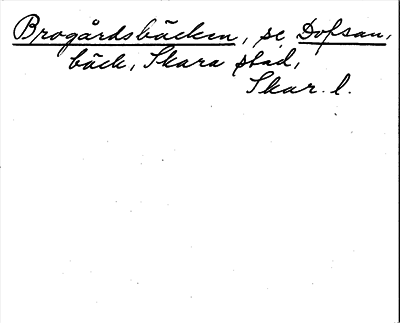 Brogårdsbäcken, se Dofsan,
bäck, Skara stad,
Skar. l.